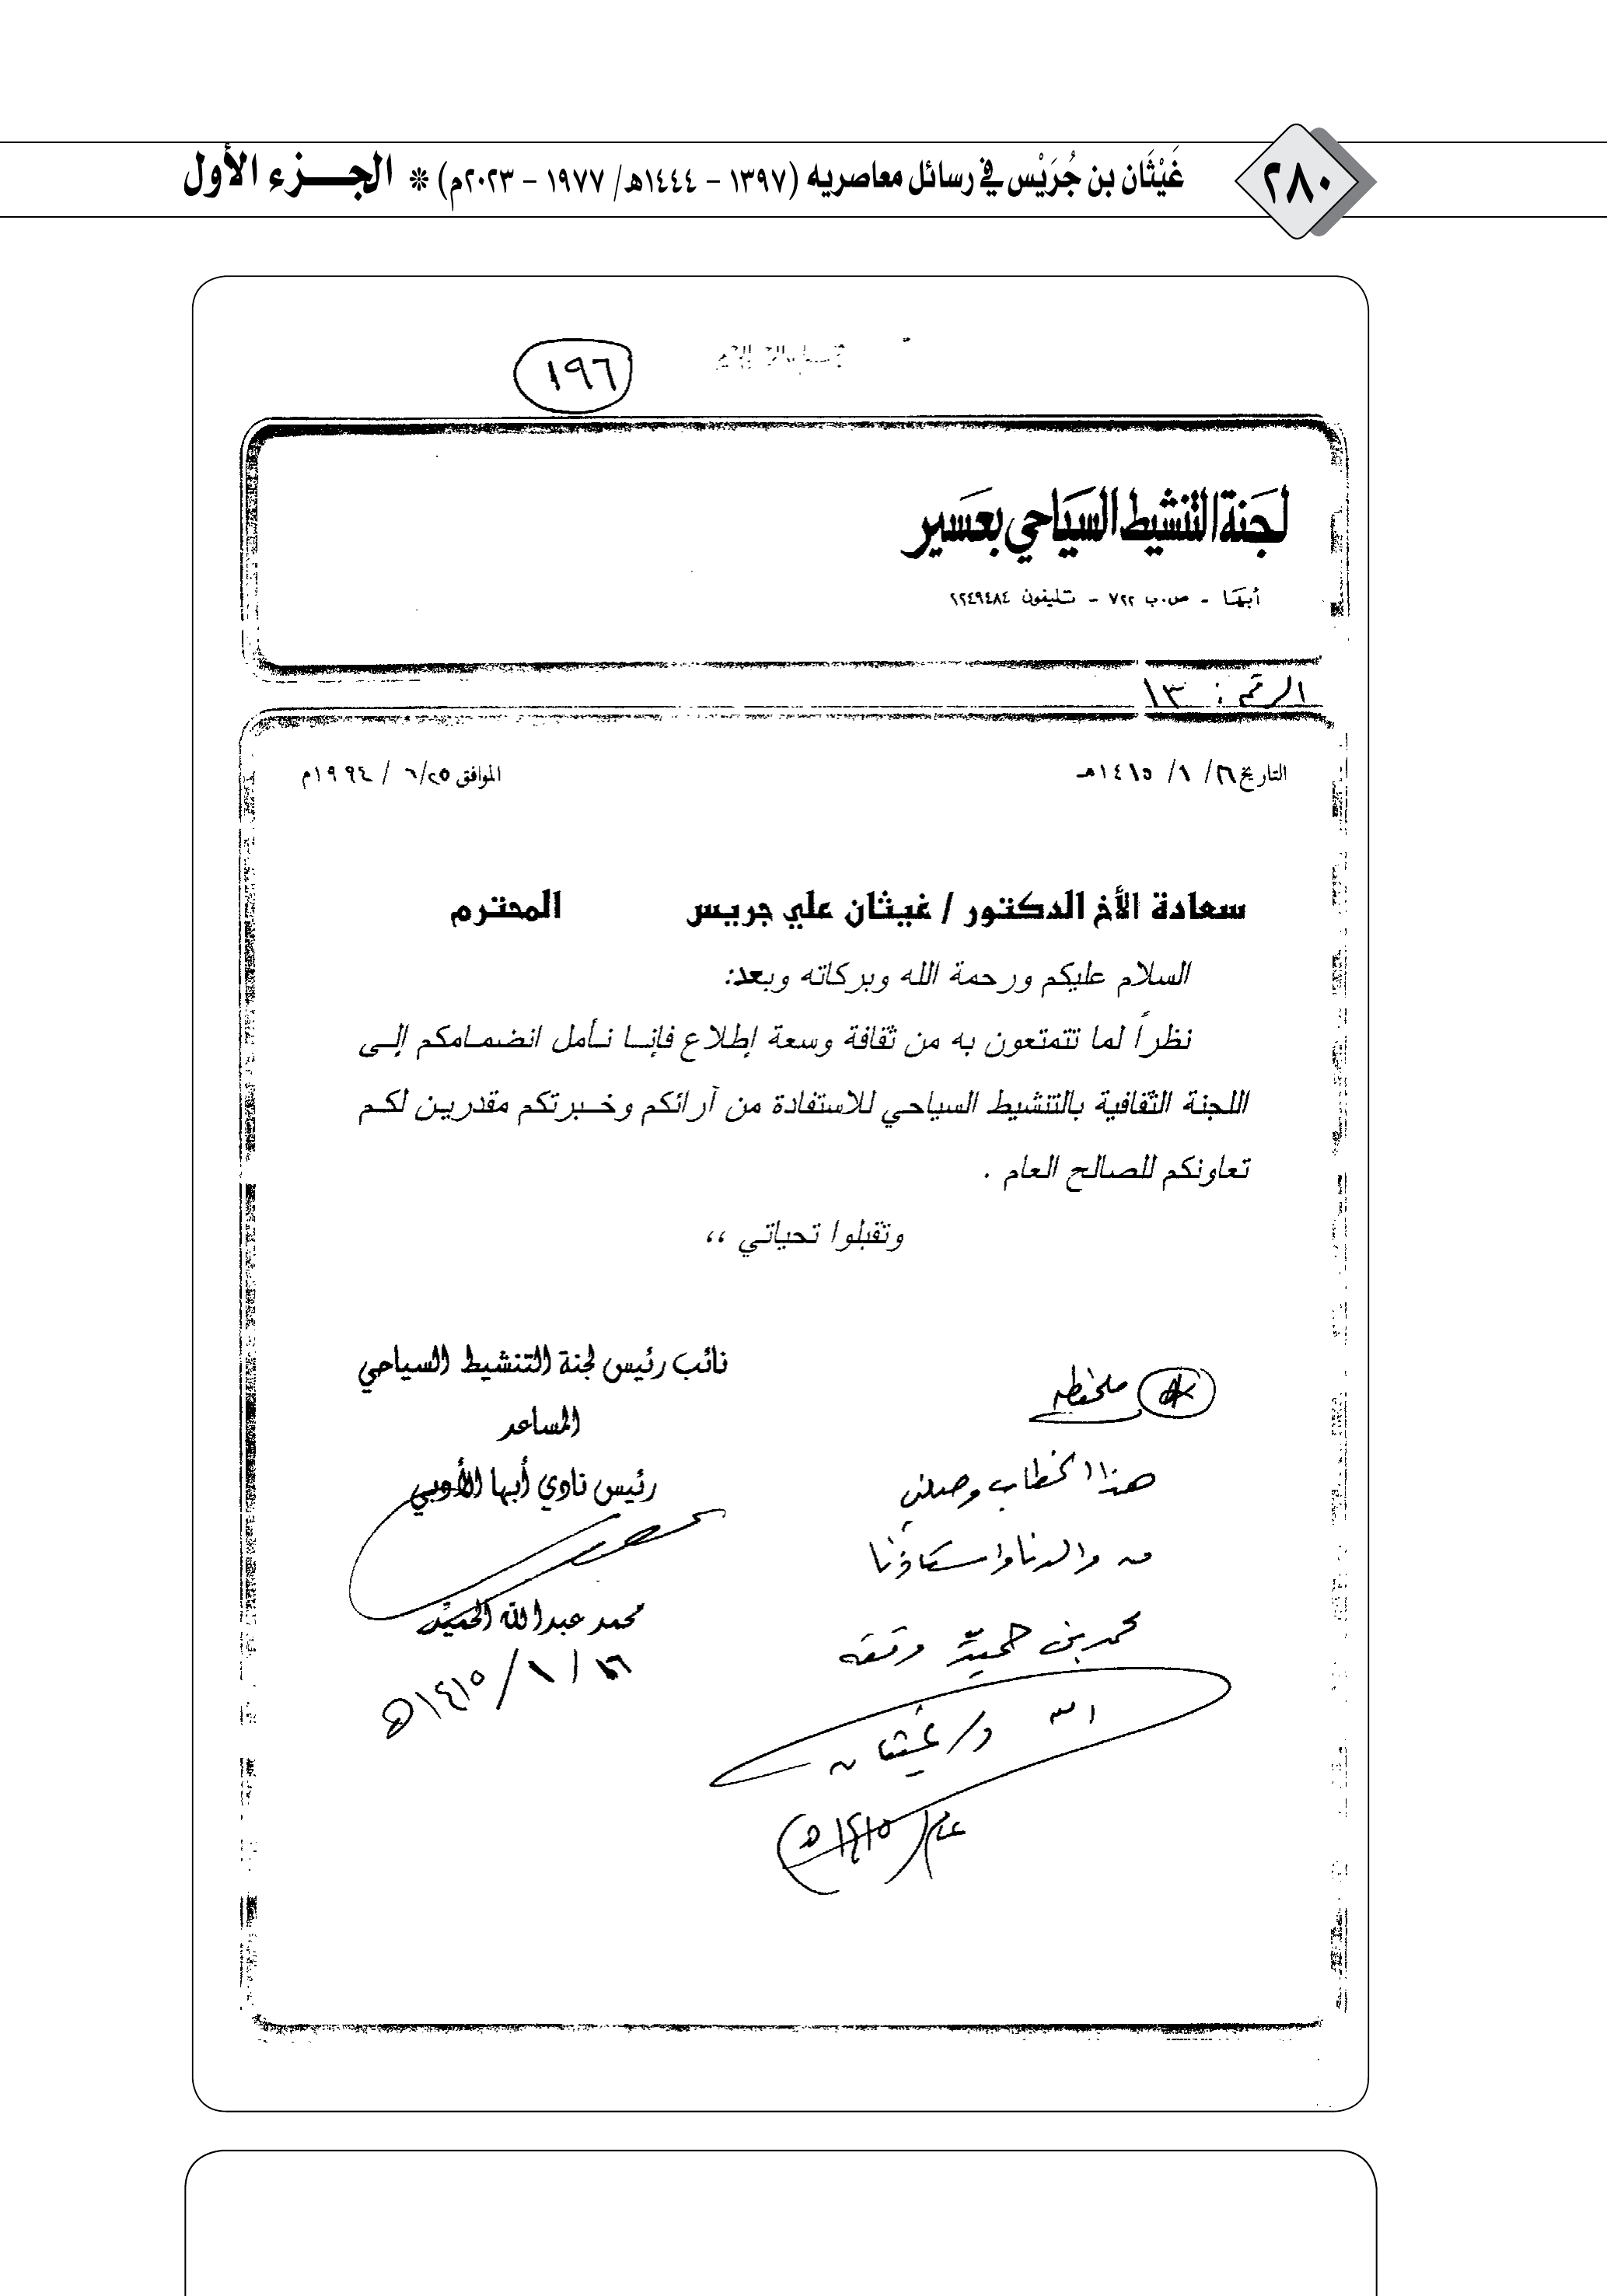 ٢٨٠
غَيْثَان بن جُرَيْس في رسائل معاصريه (١٣٩٧ - ١٤٤٤هـ/ ١٩٧٧ - ٢٠٢٣م) * الجزء الأول
١٩٦
لجنة التنشيط السياحي بعسير
أبها - ص.ب ٧٢٢ - تليفون ٢٢٤٩٤٨٤
الرقم : ١٣
التاريخ ١٦/ ١/ ١٤١٥هـ
الموافق ٦/٢٥ / ١٩٩٤م
سعادة الأخ الدكتور / غيثان علي جريس المحترم
السلام عليكم ورحمة الله وبركاته وبعد:
نظراً لما تتمتعون به من ثقافة وسعة إطلاع فإنا نأمل انضمامكم إلى
اللجنة الثقافية بالتنشيط السياحي للاستفادة من آرائكم وخبرتكم مقدرين لكم
تعاونكم للصالح العام .
وتقبلوا تحياتي ،،
نائب رئيس لجنة التنشيط السياحي
المساعد
رئيس نادي أبها الأدبي
محمد عبدالله الحميِّد
١٦ / ١ / ١٤١٥هـ
* ملحظه
هذا الخطاب وصلني
من والدنا واستاذنا
محمد بن حميِّد وفقه
الله د/ غيثان
عام (١٤١٥هـ)